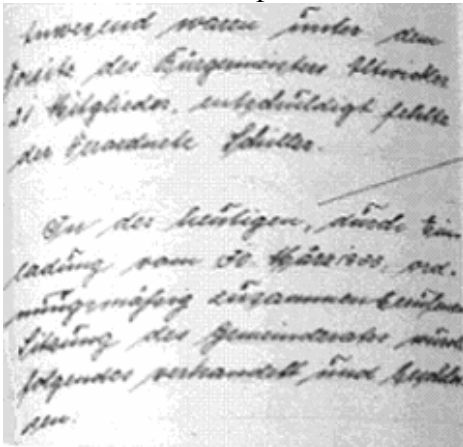 Anwesend waren unter dem
Vorsitz des Bürgermeisters
21 Mitglieder, entschuldigt fehlte
der Verordnete Schüller.
In der heutigen, durch Ein-
ladung vom 30. März 1903, ord-
nungsmäßig zusammenberufenen
Sitzung des Gemeinderates wurde
folgendes verhandelt und beschlos
sen.